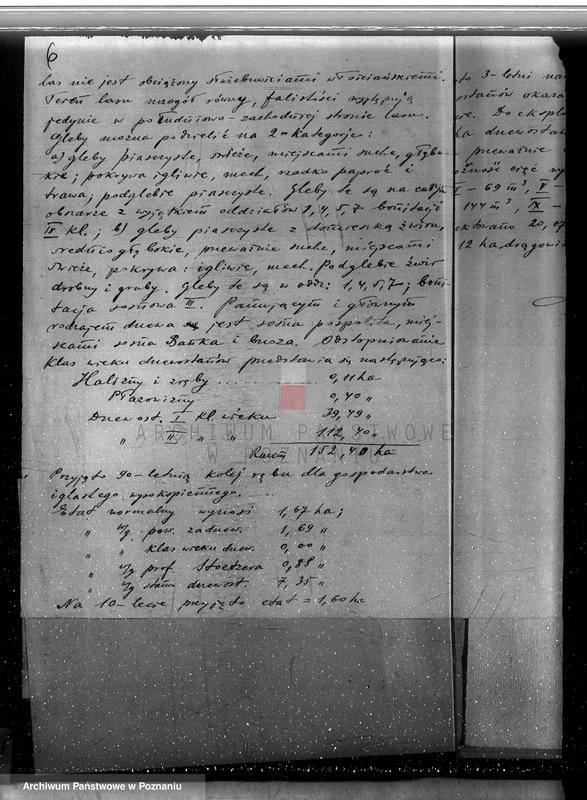 6
las nie jest obciążony służebnościami włościańskiemi.
Teren lasu naogół równy, falistości występują
jedynie w południowo-zachodniej stronie lasu.
Gleby można podzielić na 2-ie kategorje:
a) gleby piaszczyste, świeże, miejscami suche, głębo-
kie; pokrywa igliwie, mech, rzadko paproć i
trawa; podglebie piaszczyste. Gleby te są na całym
obszarze z wyjątkiem oddziałów 1, 4, 5, 7 bonitacji
IV kl.; b) gleby piaszczyste z domieszką żwiru,
średnio głębokie, przeważnie suche, miejscami
świeże, pokrywa: igliwie, mech. Podglebie żwir
drobny i gruby. Gleby te są w oddz: 1, 4, 5, 7; boni-
tacja sosnowa III. Panującym i głównym
rodzajem drzewa jest sosna pospolita, miej-
scami sosna Banka i brzoza. Odstopniowanie
klas wieku drzewostanów przedstawia się następująco:
Halizny i zręby 0,11 ha
Płazowizny 0,40 "
Drzewost. I kl. wieku 39,49 "
" II " " 112,40 "
Razem 152,40 ha
Przyjęto 90-letnią kolej rębu dla gospodarstwa
iglastego wysokopiennego.
Etat normalny wynosi 1,67 ha;
" w/g. pow. zadrzew. 1,69 "
" " klas wieku drzew. 0,00 "
" w/g prof. Stoetzera 0,88 "
" w/g stanu drzewost. 7,35 "
Na 10-lecie przyjęto etat = 1,60 ha
to 3-letni
ostanów okaza
Do eksplo
ha drzewosta
przeważnie
ożność cięć wy
I - 69 m³, V -
144 m³, IX -
ektowano 20,07
12 ha, drągowin
ARCHIWUM PAŃSTWOWE
W POZNANIU
Archiwum Państwowe w Poznaniu